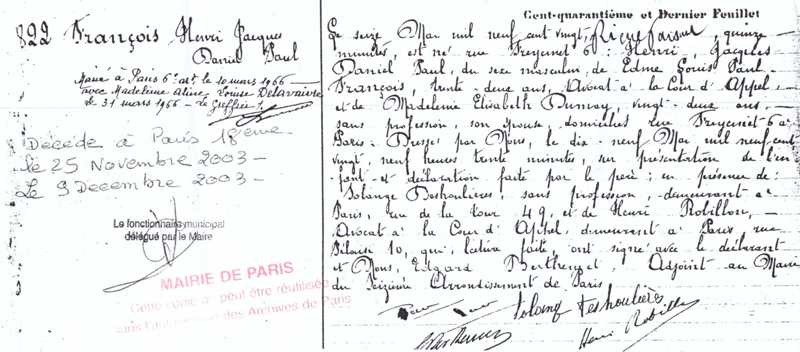 822 François Henri Jacques
Daniel Paul
Marié à Paris 6e arrt le 10 mars 1966
avec Madeleine Aline Louise Delavaivre
le 31 mars 1966 - Le Greffier
Décédé à Paris 18ème
le 25 Novembre 2003 -
Le 9 Decembre 2003 -
Le fonctionnaire municipal
délégué par le Maire
MAIRIE DE PARIS
Cette copie ne peut être réutilisée
sans l'autorisation des Archives de Paris
Cent-quarantième et Dernier Feuillet
Le seize Mai mil neuf cent vingt, quinze
minutes, est né rue Freycinet 6 : Henri, Jacques
Daniel Paul, du sexe masculin, de Edme Louis Paul
François, trente-deux ans, Avocat à la Cour d'Appel,
et de Madeleine Elisabeth, vingt-deux ans,
sans profession, son épouse, domiciliés rue Freycinet 6 à
Paris. Dressé par Nous, le dix-neuf Mai mil neuf cent
vingt, neuf heures trente minutes, sur présentation de l'en
fant et déclaration faite par le père ; en présence de :
Solange Deshoulières, sans profession, demeurant à
Paris, rue de la tour 49, et de Henri Robillon,
Avocat à la Cour d'Appel, demeurant à Paris, rue
10, qui, lecture faite, ont signé avec le déclarant
et Nous, Edgard, Adjoint au Maire
du Seizième Arrondissement de Paris
Solange Deshoulières
Henri Robillon